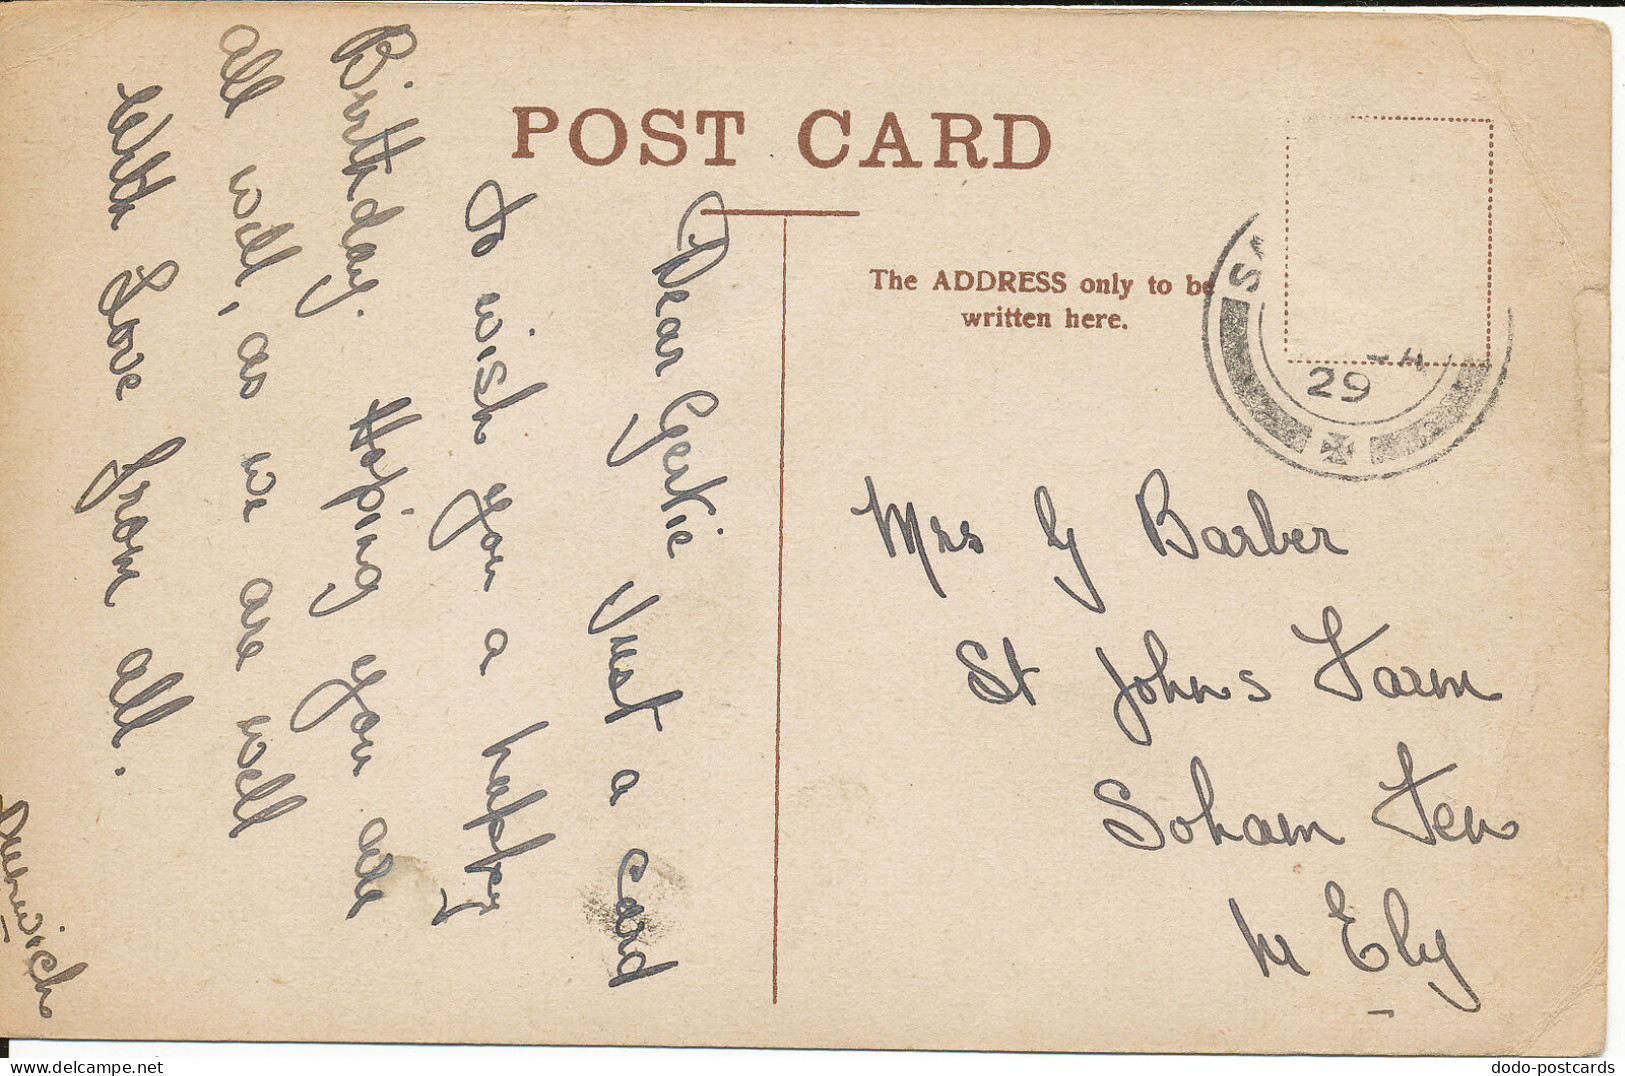 POST CARD
The ADDRESS only to be
written here.
29
Dear Gertie Just a card
to wish you a happy
Birthday. Hoping you are
all well, as we are well
With Love from all.
Mrs G Barber
St Johns Farm
Soham Fen
Nr Ely
delcampe.net
dodo-postcards